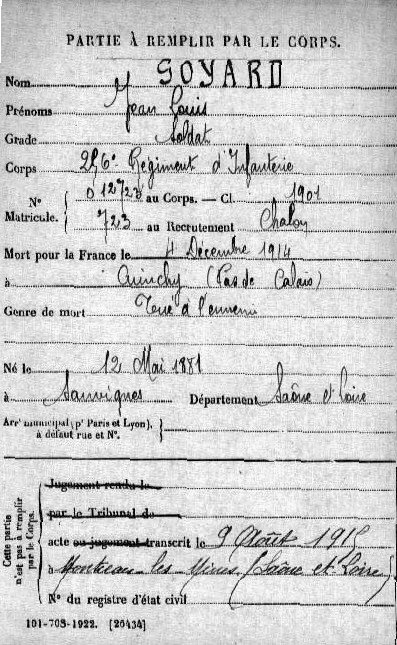 PARTIE À REMPLIR PAR LE CORPS.
Nom GOYARD
Prénoms Jean Louis
Grade Soldat
Corps 256e Régiment d'Infanterie
N° Matricule. { 012723 au Corps. — Cl. 1901
723 au Recrutement Chalon
Mort pour la France le 4 Décembre 1914
à Cuinchy (Pas de Calais)
Genre de mort Tué à l'ennemi
Né le 12 Mai 1881
à Sanvignes Département Saône et Loire
Arrt municipal (pr Paris et Lyon), à défaut rue et N°. }
Cette partie n'est pas à remplir par le Corps.
Jugement rendu le
par le Tribunal de
acte ou jugement transcrit le 9 Août 1915
à Montceau-les-Mines (Saône et Loire)
N° du registre d'état civil
101-708-1922. [26434]